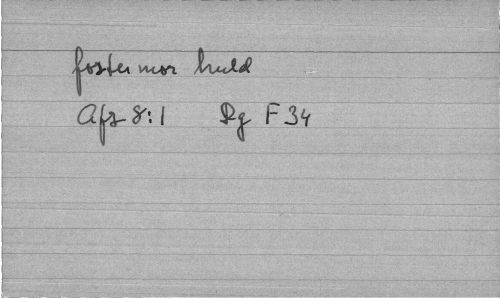 fostermor huld
Afz 8:1 Dg F 34